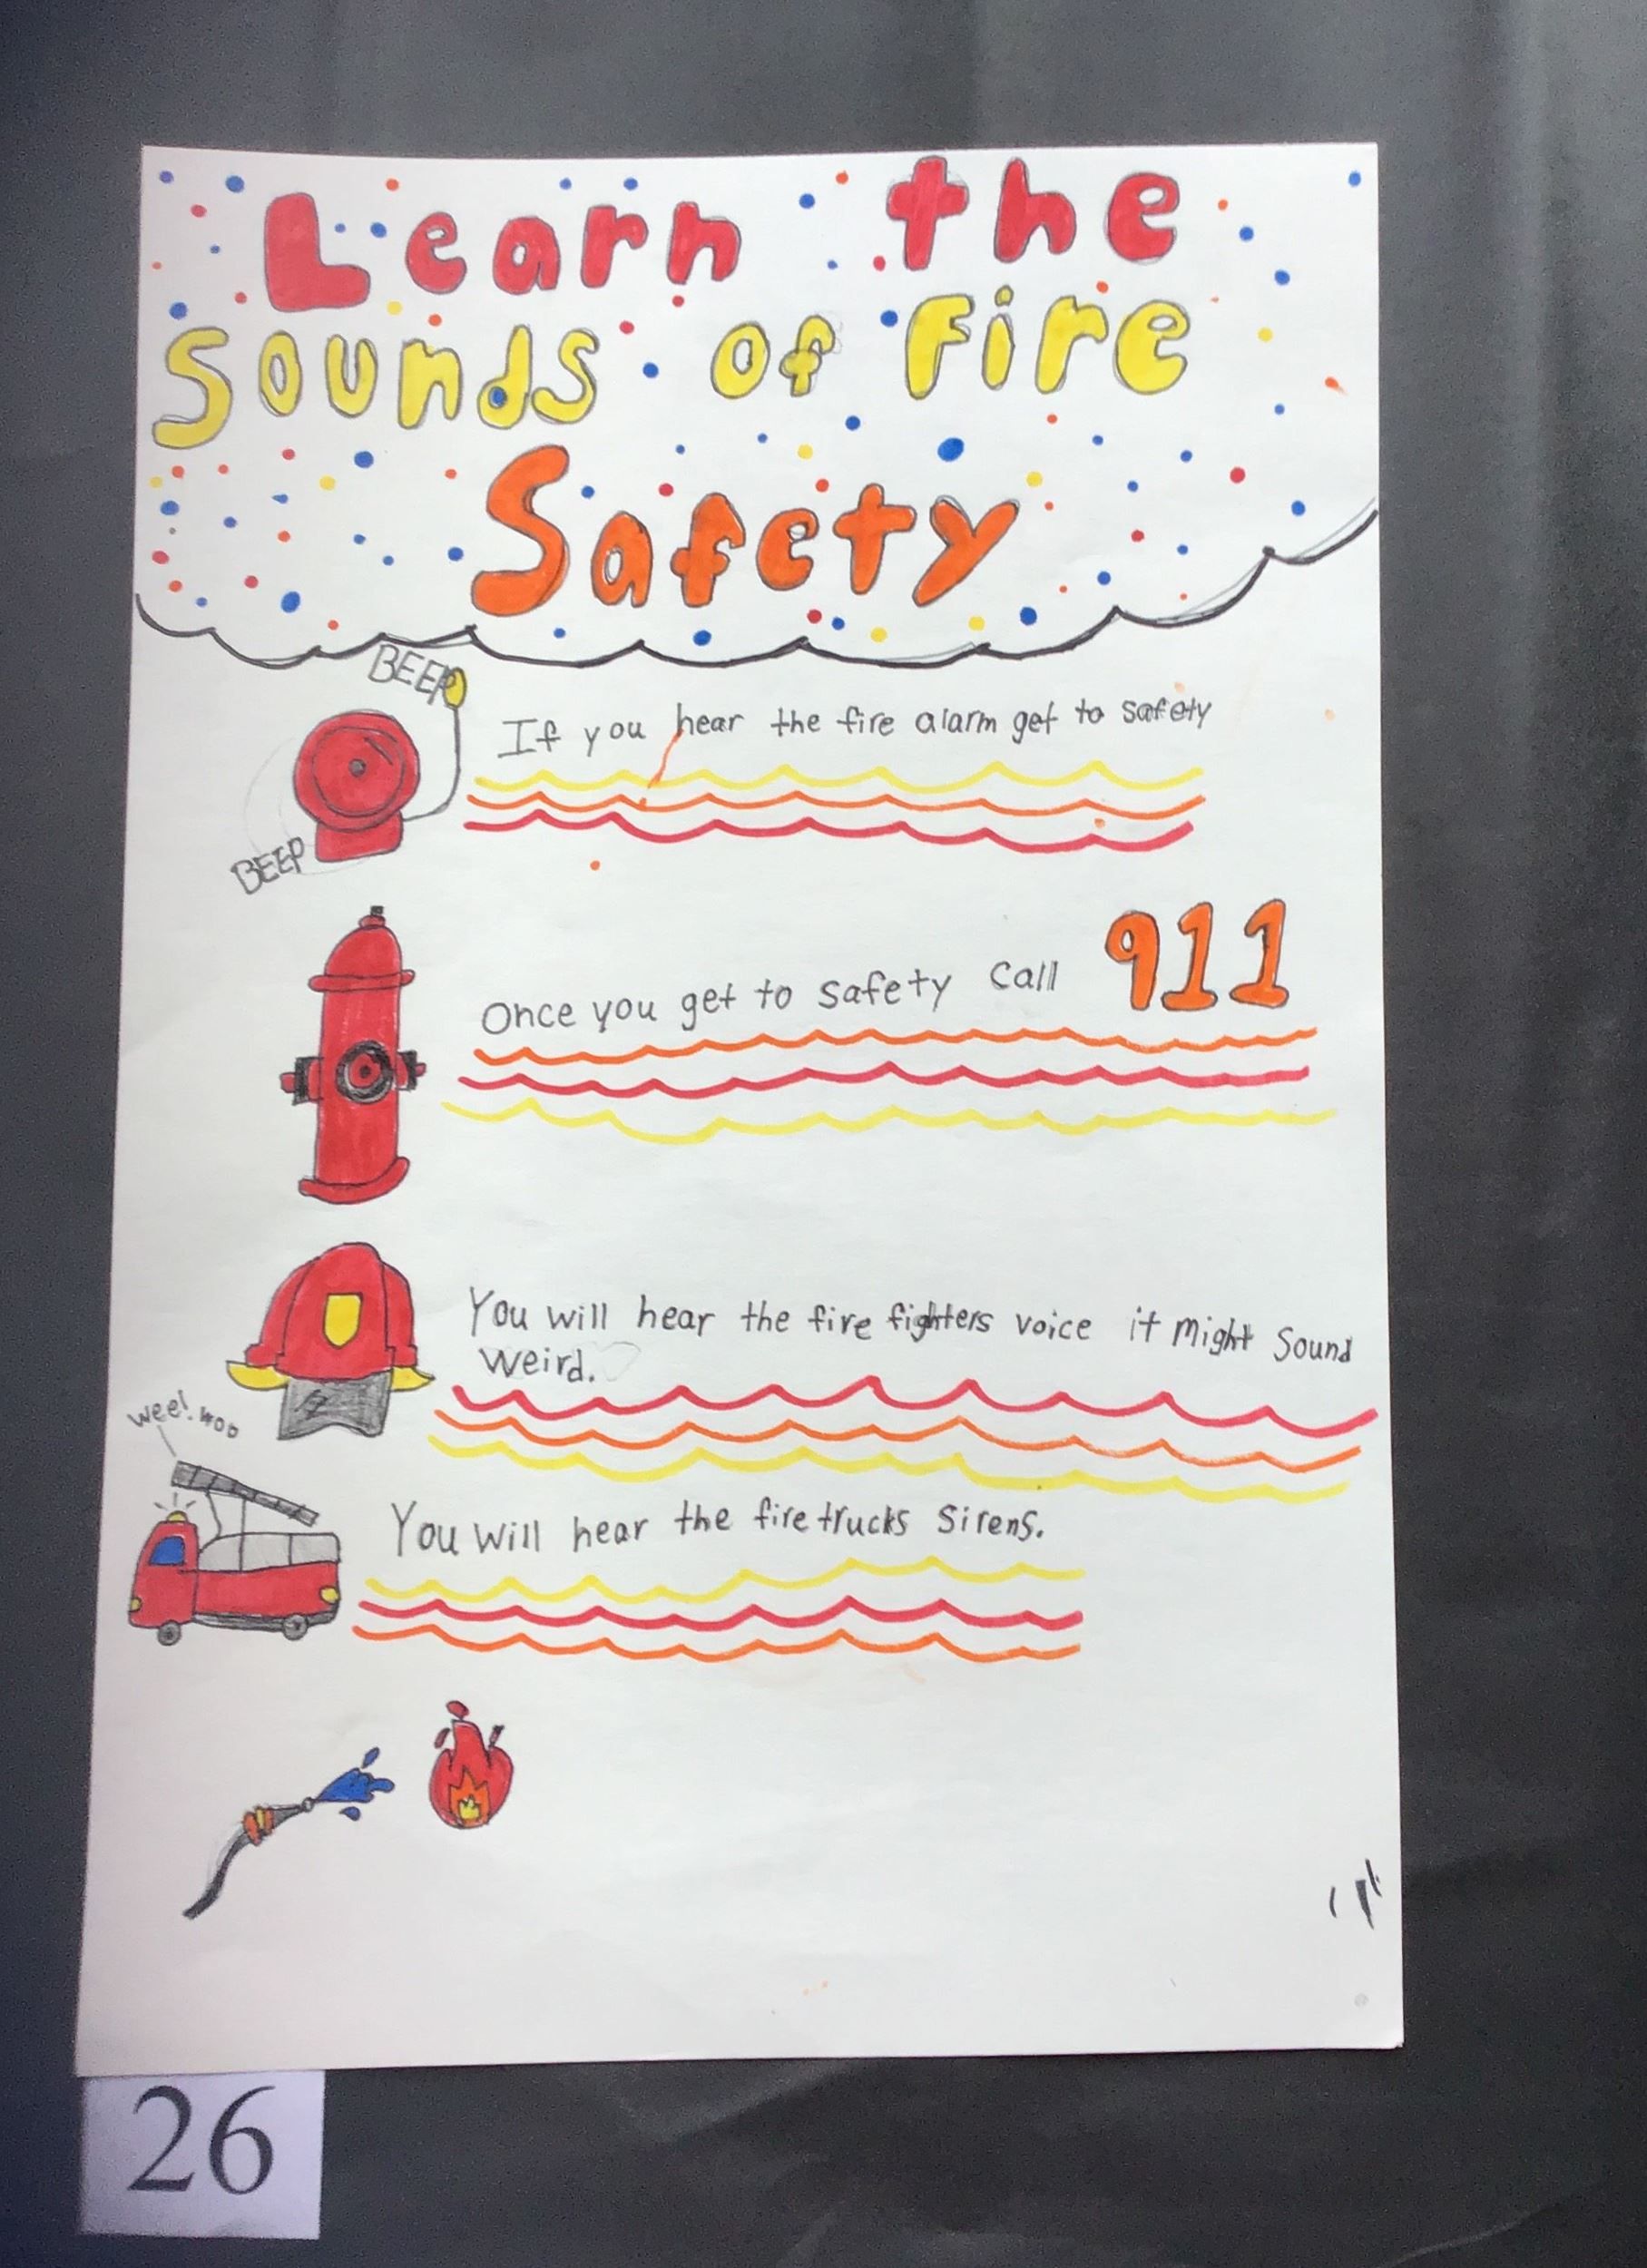 Learn the
Sounds of Fire
Safety
BEEP
If you hear the fire alarm get to safety
BEEP
Once you get to safety call 911
You will hear the fire fighters voice it might sound
weird.
wee! woo
You will hear the firetrucks sirens.
26